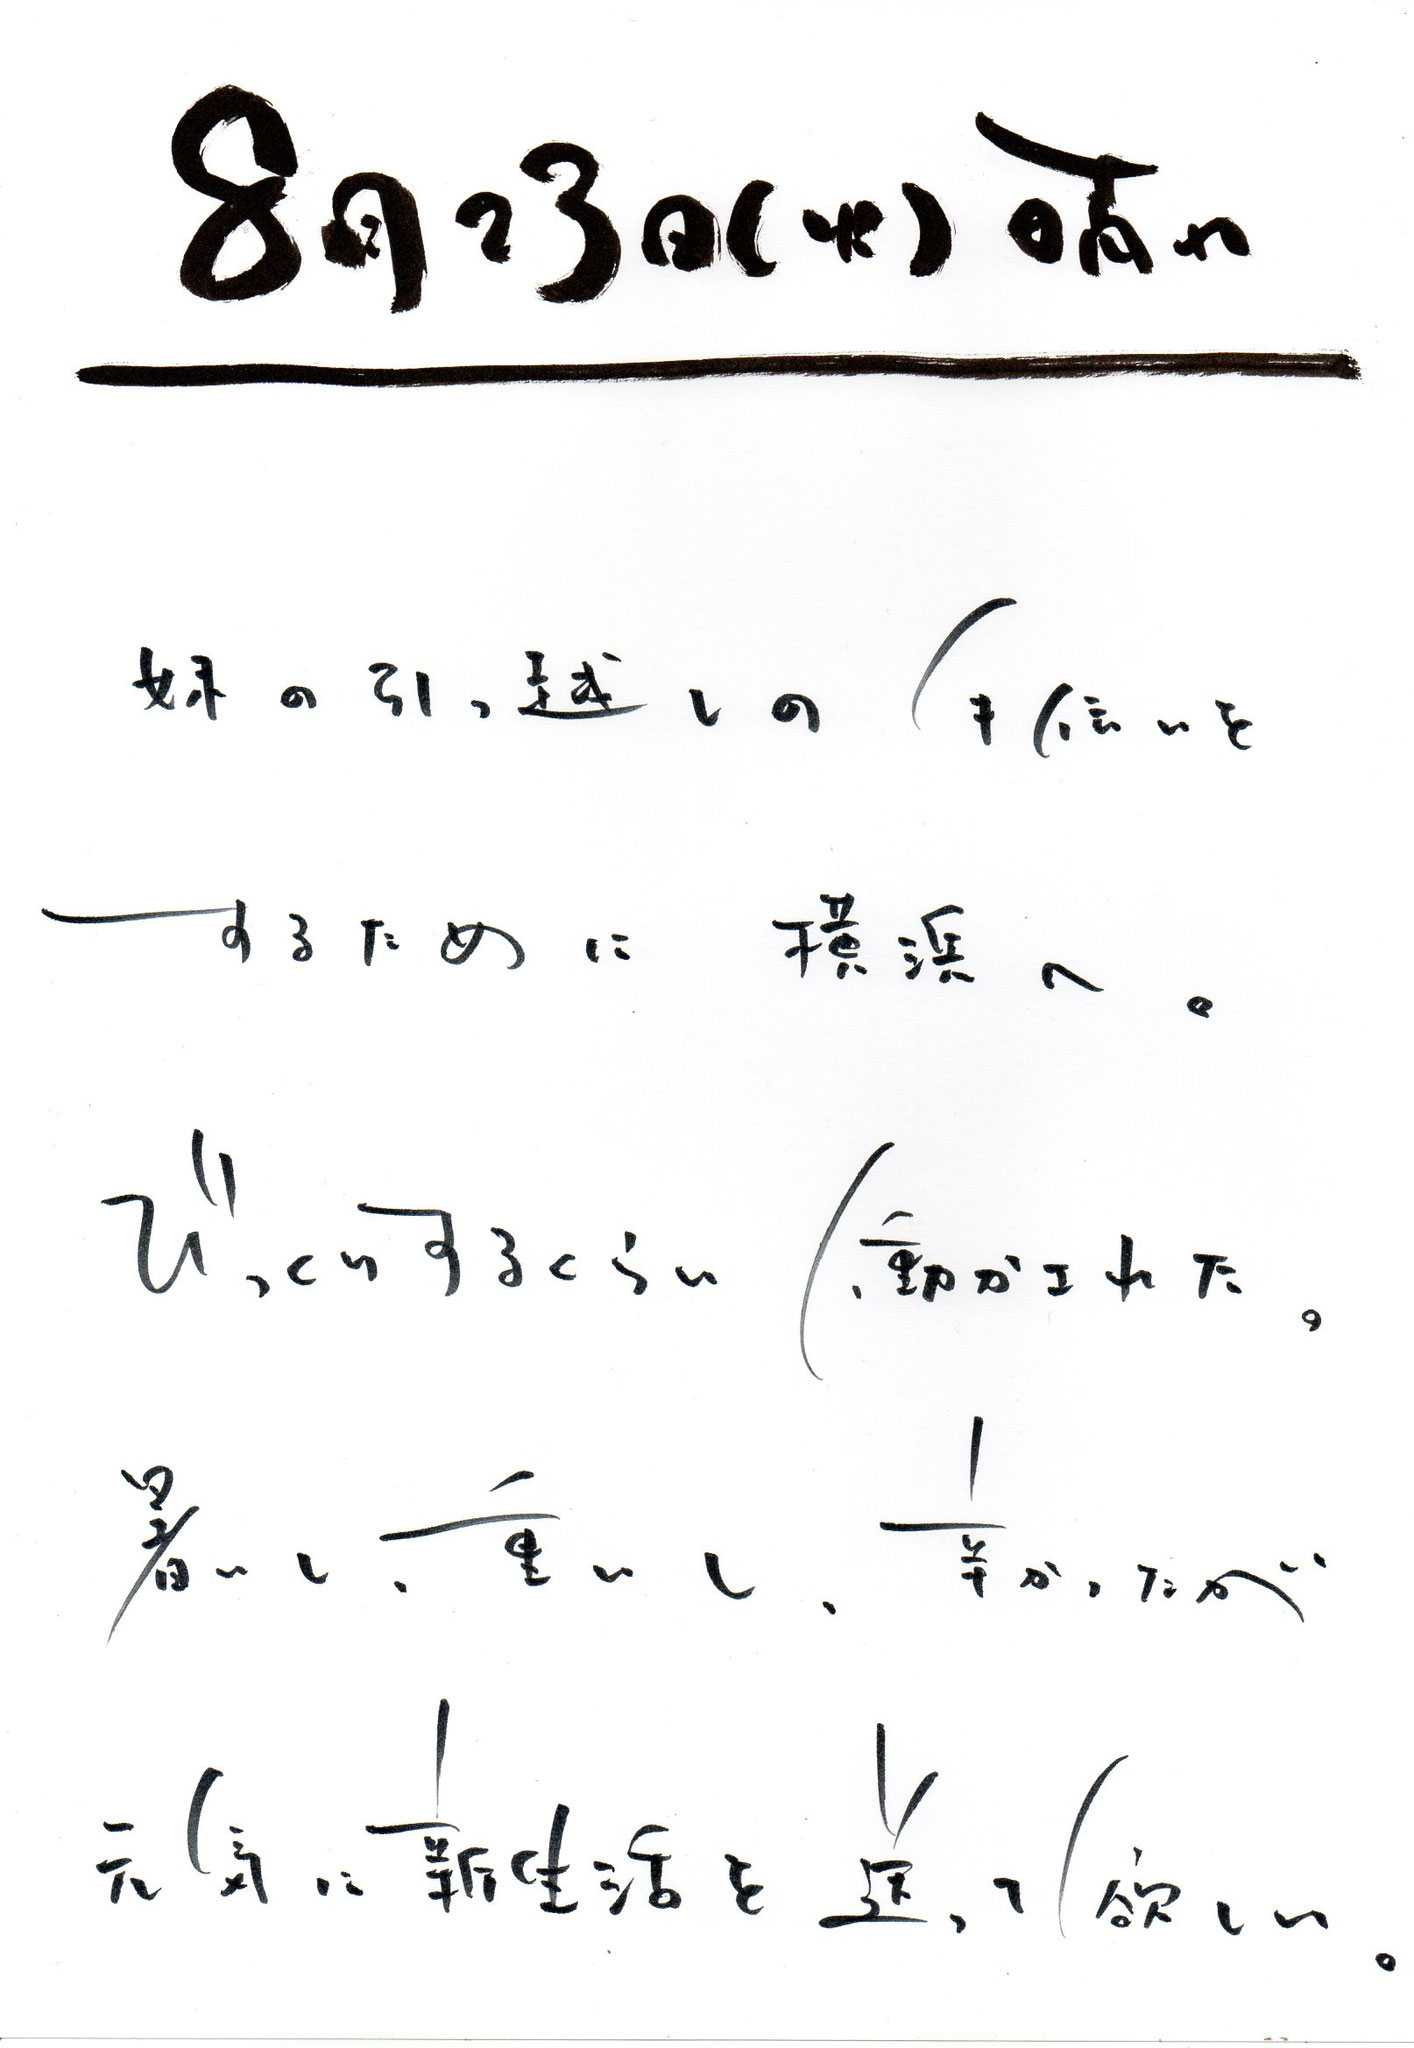 8月23日(水) 晴れ
妹の引っ越しの手伝いを
するために 横浜へ。
びっくりするくらい働かされた。
暑いし、重いし、辛かったが
元気に新生活を送って欲しい。